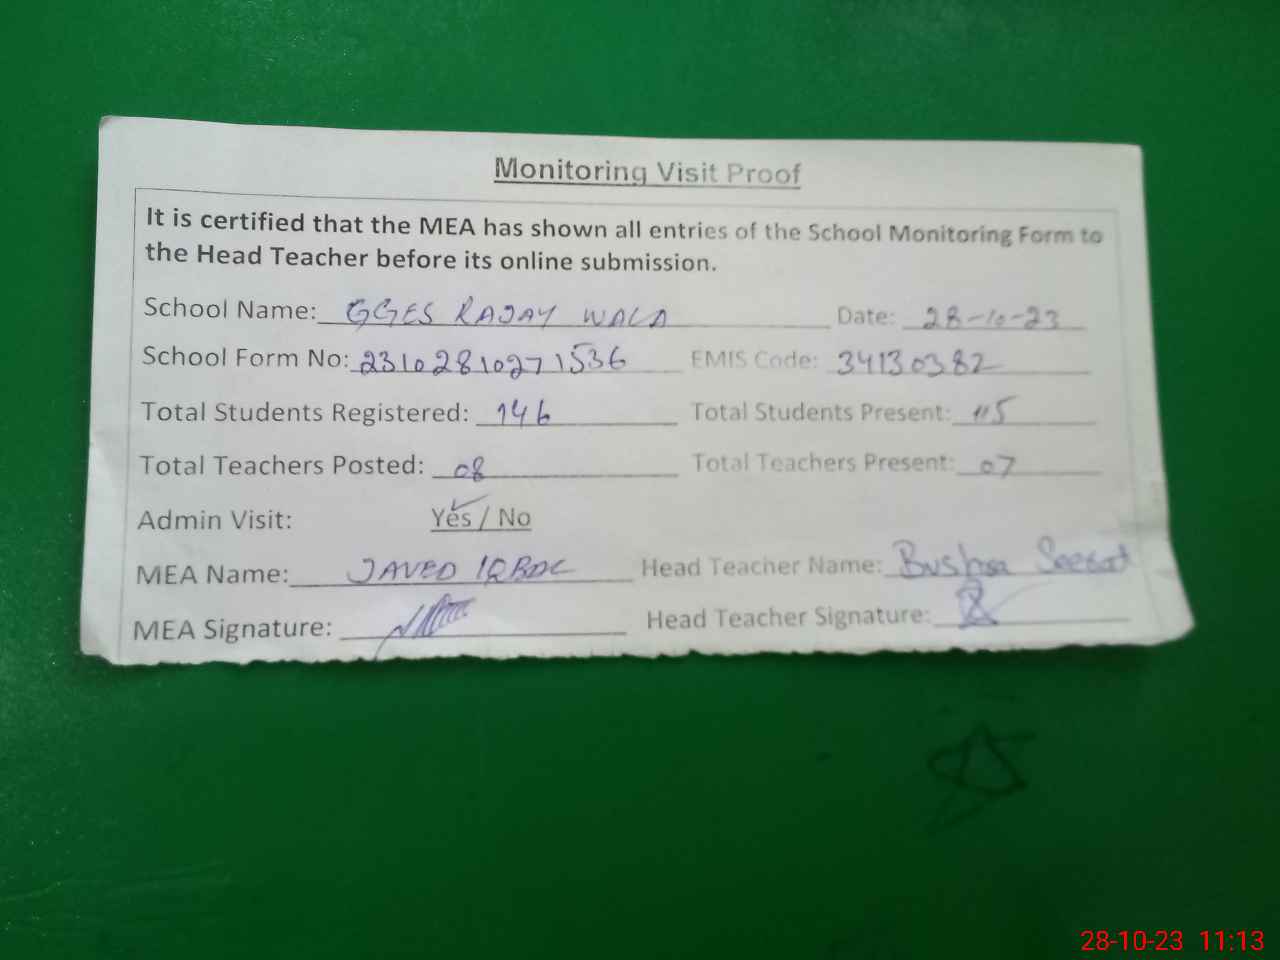 Monitoring Visit Proof
It is certified that the MEA has shown all entries of the School Monitoring Form to
the Head Teacher before its online submission.
School Name: GGES RAJAY WALA Date: 28-10-23
School Form No: 23102810271536 EMIS Code: 34130382
Total Students Registered: 146 Total Students Present: 115
Total Teachers Posted: 08 Total Teachers Present: 07
Admin Visit: Yes / No
MEA Name: JAVED IQBAL Head Teacher Name: Bushra
MEA Signature: Head Teacher Signature:
28-10-23 11:13